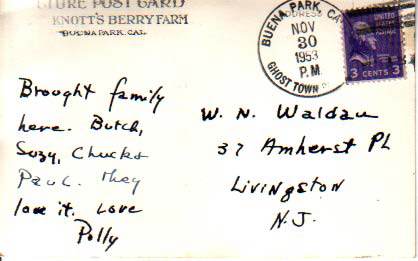 TURE POST CARD
KNOTT'S BERRY FARM
BUENA PARK, CAL.
BUENA PARK, CA
NOV
30
1953
P.M.
GHOST TOWN
UNITED STATES
3 CENTS 3
Brought family
here. Butch,
Suzy, Chuck &
Paul. They
love it. Love
Polly
W. N. Waldau
37 Amherst PL
Livingston
N.J.